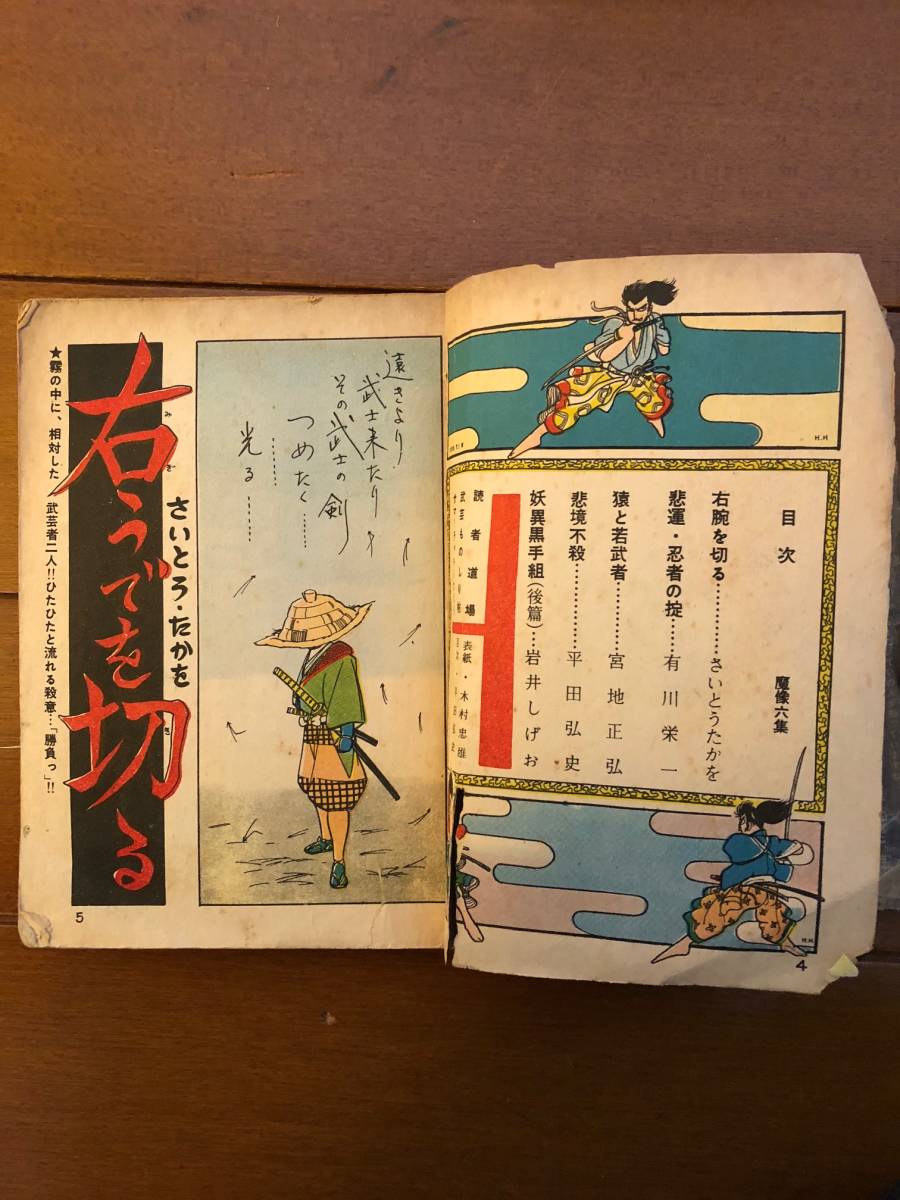 目次
魔像六集
右腕を切る……………さいとうたかを
悲運・忍者の掟……有川栄一
猿と若武者……………宮地正弘
悲境不殺………………平田弘史
妖異黒手組(後篇)…岩井しげお
読者道場
武芸ものしり
表紙・木村忠雄
H.H
H.H
4
遠きより
武士来たり
その武士の剣
つめたく……
光る……
さいとう・たかを
右うでを切る
みぎ
き
★霧の中に、相対した 武芸者二人!!ひたひたと流れる殺意…「勝負っ」!!
5